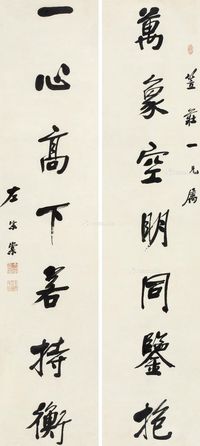 萬象空明同鑒抱
笠莊一兄屬
一心高下若持衡
左宗棠